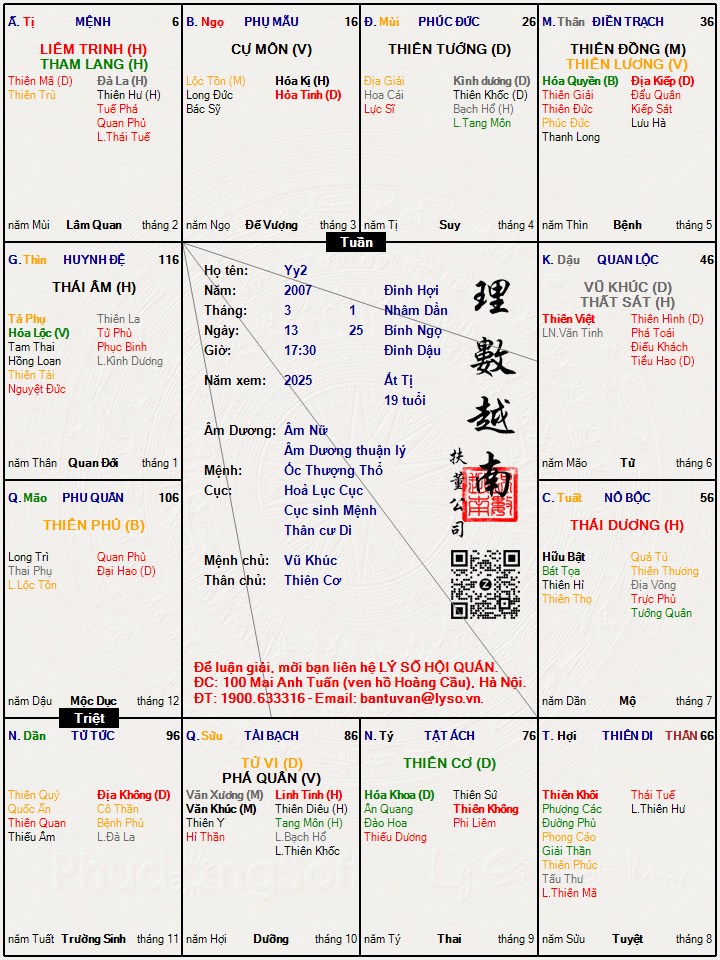 Ấ. Tị MỆNH 6
LIÊM TRINH (H)
THAM LANG (H)
Thiên Mã (D) Đà La (H)
Thiên Trù Thiên Hư (H)
Tuế Phá
Quan Phủ
L.Thái Tuế
năm Mùi Lâm Quan tháng 2
B. Ngọ PHỤ MẪU 16
CỰ MÔN (V)
Lộc Tồn (M) Hóa Kị (H)
Long Đức Hỏa Tinh (D)
Bác Sỹ
năm Ngọ Đế Vượng tháng 3
Đ. Mùi PHÚC ĐỨC 26
THIÊN TƯỚNG (D)
Địa Giải Kình dương (D)
Hoa Cái Thiên Khốc (D)
Lực Sĩ Bạch Hổ (H)
L.Tang Môn
năm Tị Suy tháng 4
M. Thân ĐIỀN TRẠCH 36
THIÊN ĐỒNG (M)
THIÊN LƯƠNG (V)
Hóa Quyền (B) Địa Kiếp (D)
Thiên Giải Đẩu Quân
Thiên Đức Kiếp Sát
Phúc Đức Lưu Hà
Thanh Long
năm Thìn Bệnh tháng 5
Tuần
G. Thìn HUYNH ĐỆ 116
THÁI ÂM (H)
Tả Phụ Thiên La
Hóa Lộc (V) Tử Phù
Tam Thai Phục Binh
Hồng Loan L.Kình Dương
Thiên Tài
Nguyệt Đức
năm Thân Quan Đới tháng 1
Họ tên: Yy2
Năm: 2007 Đinh Hợi
Tháng: 3 1 Nhâm Dần
Ngày: 13 25 Bính Ngọ
Giờ: 17:30 Đinh Dậu
Năm xem: 2025 Ất Tị
19 tuổi
Âm Dương: Âm Nữ
Âm Dương thuận lý
Mệnh: Ốc Thượng Thổ
Cục: Hoả Lục Cục
Cục sinh Mệnh
Thân cư Di
Mệnh chủ: Vũ Khúc
Thân chủ: Thiên Cơ
理數越南
扶董公司
Để luận giải, mời bạn liên hệ LÝ SỐ HỘI QUÁN.
ĐC: 100 Mai Anh Tuấn (ven hồ Hoàng Cầu), Hà Nội.
ĐT: 1900.633316 - Email: bantuvan@lyso.vn.
K. Dậu QUAN LỘC 46
VŨ KHÚC (D)
THẤT SÁT (H)
Thiên Việt Thiên Hình (D)
LN.Văn Tinh Phá Toái
Điếu Khách
Tiểu Hao (D)
năm Mão Tử tháng 6
Q. Mão PHU QUÂN 106
THIÊN PHỦ (B)
Long Trì Quan Phù
Thai Phụ Đại Hao (D)
L.Lộc Tồn
năm Dậu Mộc Dục tháng 12
C. Tuất NÔ BỘC 56
THÁI DƯƠNG (H)
Hữu Bật Quả Tú
Bát Tọa Thiên Thương
Thiên Hỉ Địa Võng
Thiên Thọ Trực Phù
Tướng Quân
năm Dần Mộ tháng 7
Triệt
N. Dần TỬ TỨC 96
Thiên Quý Địa Không (D)
Quốc Ấn Cô Thần
Thiên Quan Bệnh Phù
Thiếu Âm L.Đà La
năm Tuất Trường Sinh tháng 11
Q. Sửu TÀI BẠCH 86
TỬ VI (D)
PHÁ QUÂN (V)
Văn Xương (M) Linh Tinh (H)
Văn Khúc (M) Thiên Diêu (H)
Thiên Y Tang Môn (H)
Hỉ Thần L.Bạch Hổ
L.Thiên Khốc
năm Hợi Dưỡng tháng 10
N. Tý TẬT ÁCH 76
THIÊN CƠ (D)
Hóa Khoa (D) Thiên Sứ
Ân Quang Thiên Không
Đào Hoa Phi Liêm
Thiếu Dương
năm Tý Thai tháng 9
T. Hợi THIÊN DI THÂN 66
Thiên Khôi Thái Tuế
Phượng Các L.Thiên Hư
Đường Phù
Phong Cáo
Giải Thần
Thiên Phúc
Tấu Thư
L.Thiên Mã
năm Sửu Tuyệt tháng 8